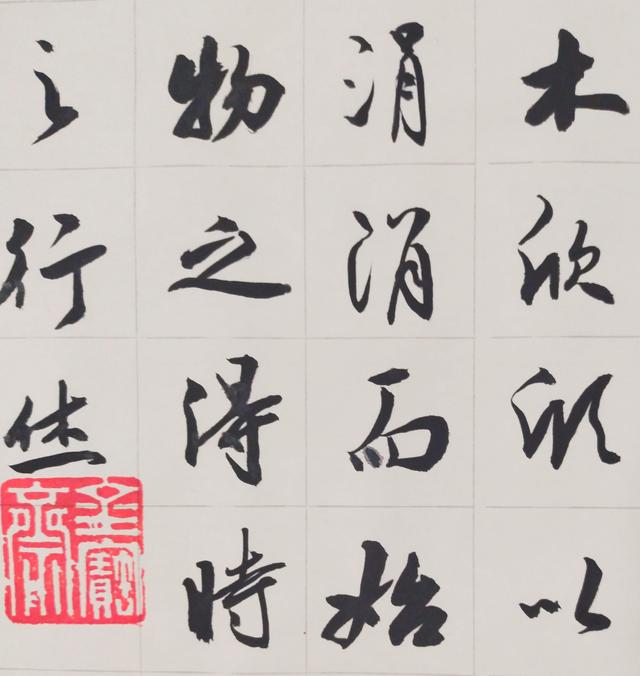 木欣欣以
涓涓而始
物之得時
之行休
至寶齋